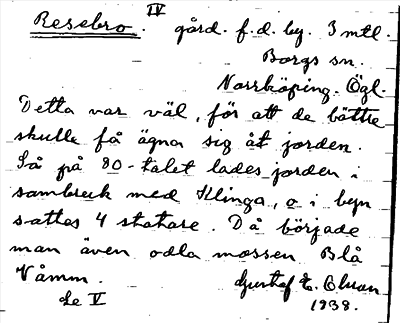 Resebro. IV gård. f.d. by. 3 mtl.
Borgs sn.
Norrköping. Ögl.
Detta var väl, för att de bättre
skulle få ägna sig åt jorden.
Så på 80-talet lades jorden i
sambruk med Klinga, o i byn
sattes 4 statare. Då började
man även odla mossen Blå
Våmm. Gustaf E. Olsson
se V 1938.